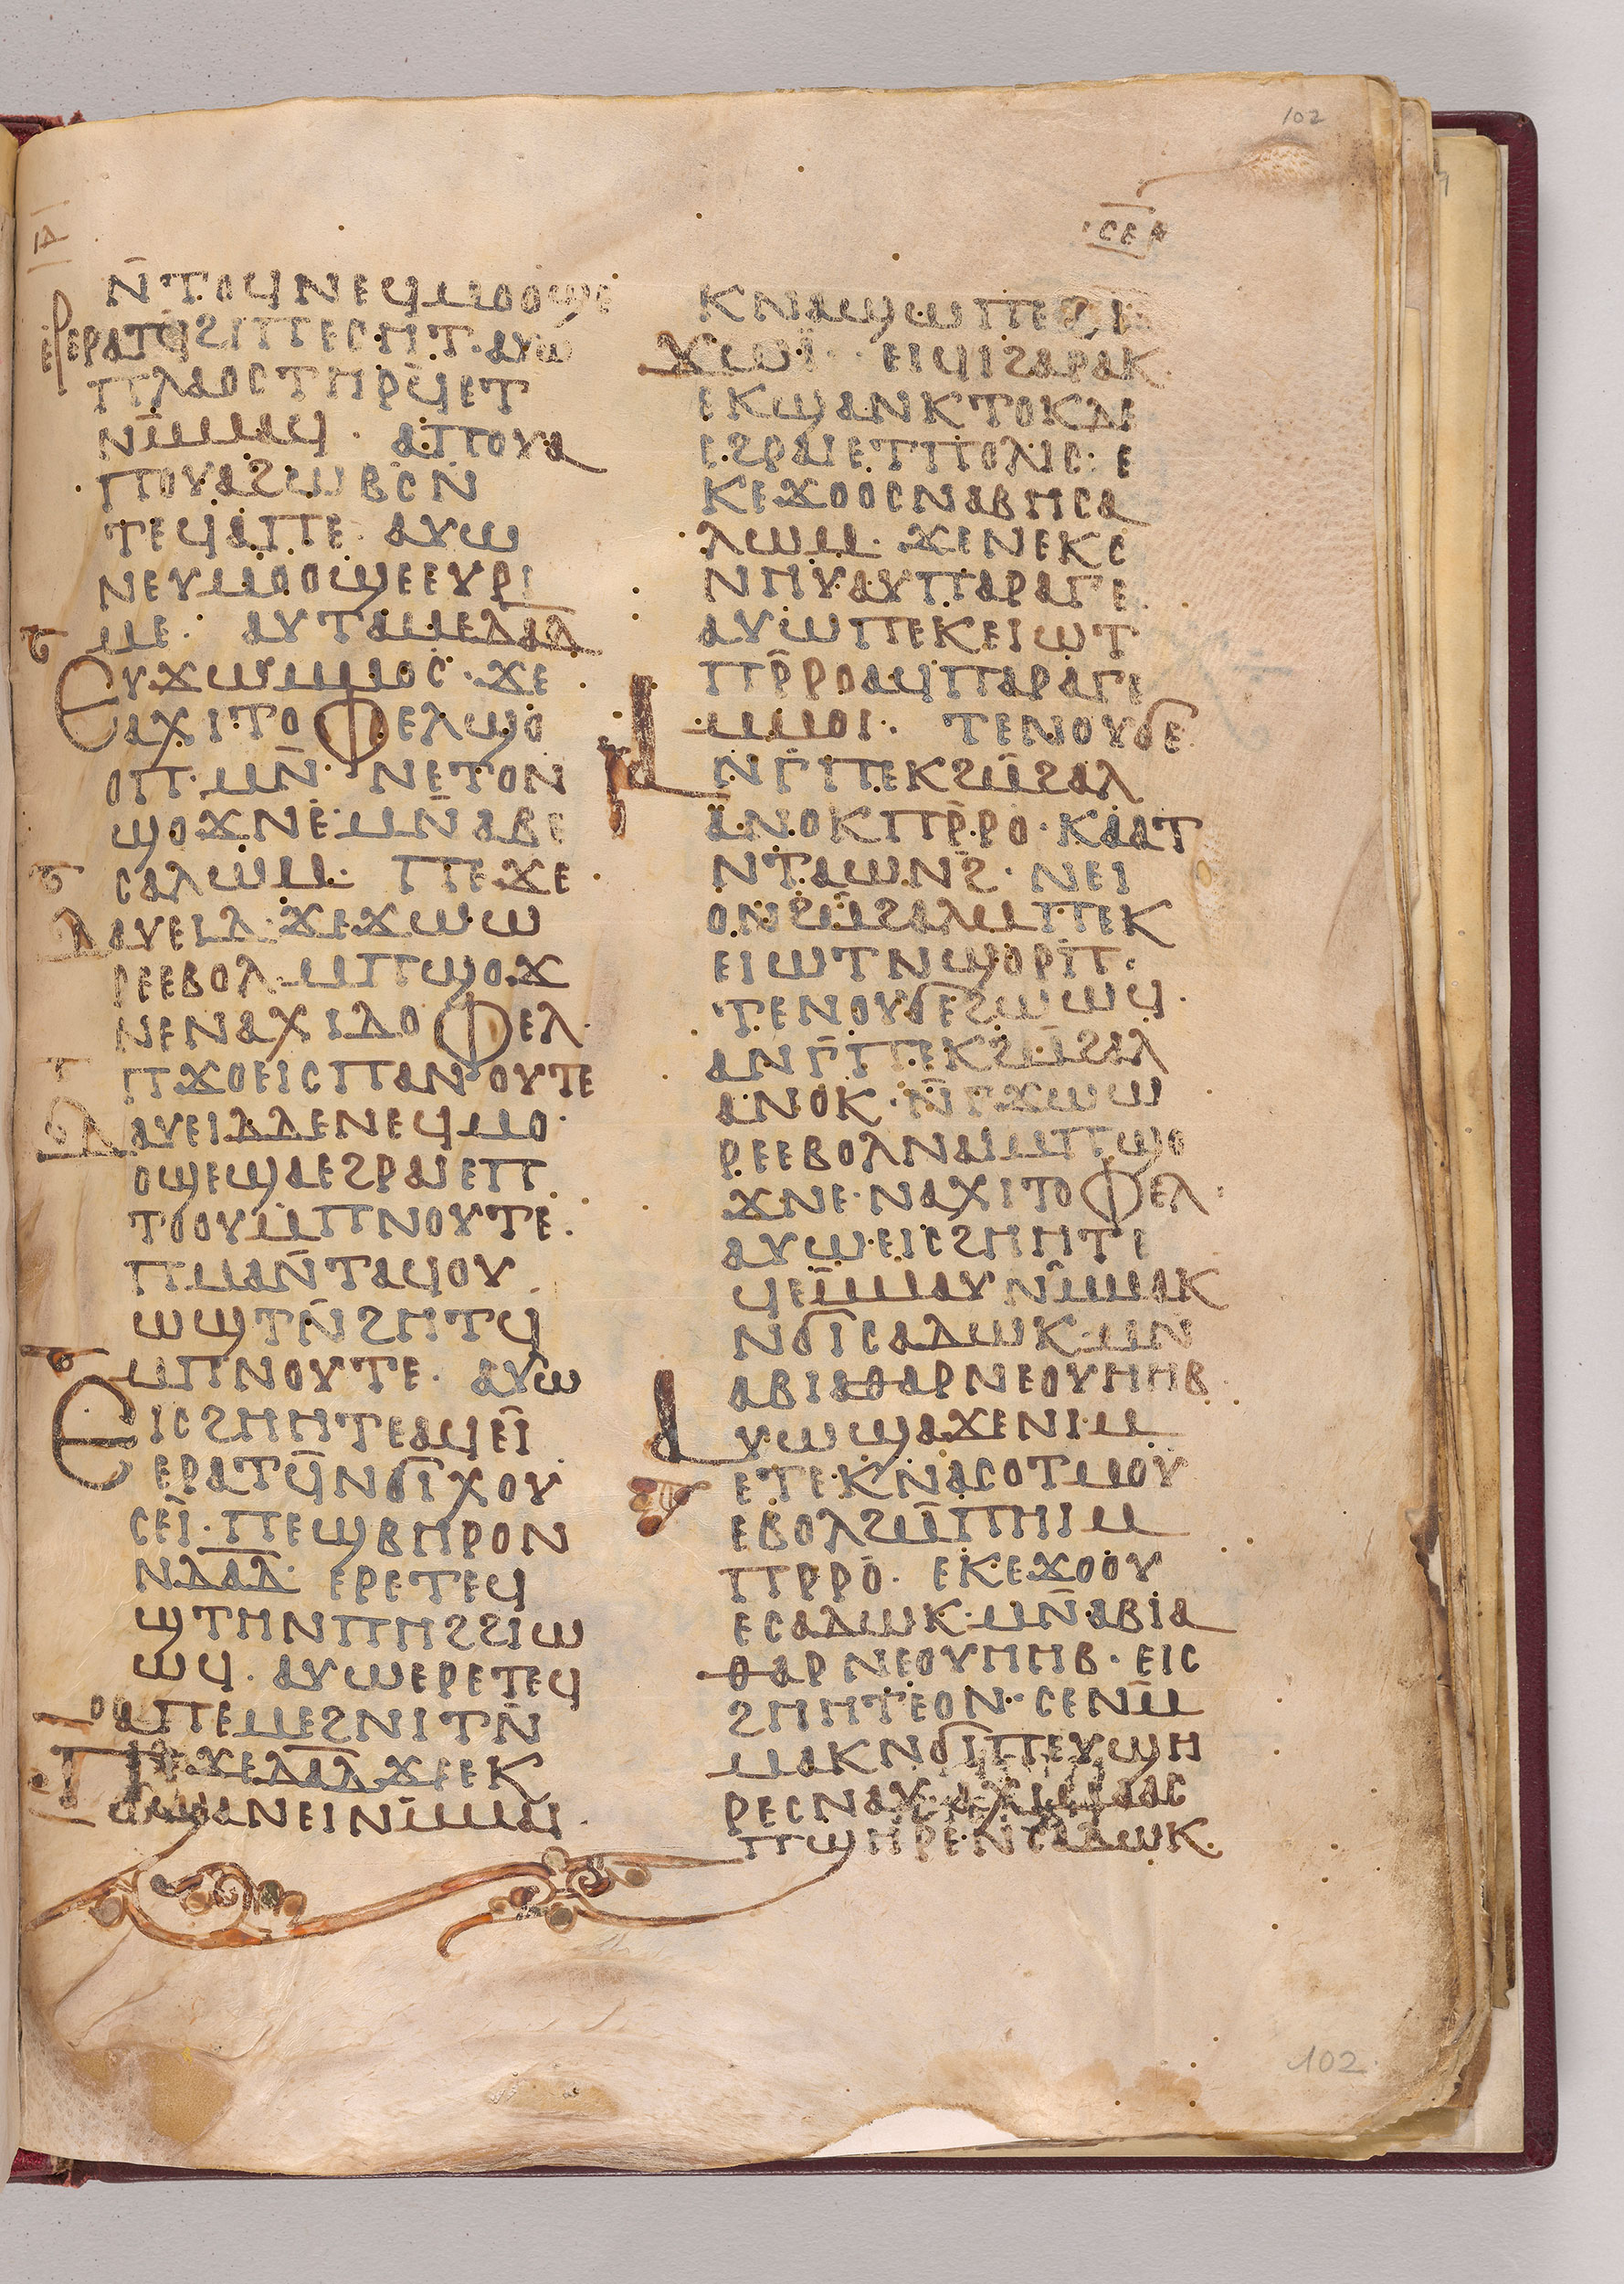 102
ⲥⲉⲁ
ⲛ̄ⲧⲟϥⲛⲉϥⲙⲟⲟϣⲉ
ⲉⲣⲉⲣⲁⲧϥϩⲓⲡⲉⲥⲏⲧ·ⲁⲩⲱ
ⲡⲗⲁⲟⲥⲧⲏⲣϥ̄ⲉⲧ
ⲛⲙ̄ⲙⲁϥ· ⲁⲡⲟⲩⲁ
ⲡⲟⲩⲁϩⲱⲃⲥⲛ̄
ⲧⲉϥⲁⲡⲉ· ⲁⲩⲱ
ⲛⲉⲩⲙⲟⲟϣⲉⲉⲩⲣⲓ
ⲙⲉ· ⲁⲩⲧⲁⲙⲉⲇⲁⲇ̄
ⲉⲩϫⲱⲙ̄ⲙⲟⲥ·ϫⲉ
ⲉⲁⲭⲓⲧⲟⲫⲉⲗϣⲟ
ⲟⲡ·ⲙⲛ̄· ⲛⲉⲧⲟⲛ
ϣⲟϫⲛⲉ·ⲙⲛ̄ⲁⲃⲉ
ⲥⲁⲗⲱⲙ· ⲡⲉϫⲉ
ⲇⲁⲩⲉⲓⲇ·ϫⲉϫⲱⲱ
ⲣⲉⲉⲃⲟⲗⲙⲡϣⲟϫ
ⲛⲉⲛⲁⲭⲓⲇⲟⲫⲉⲗ·
ⲡϫⲟⲉⲓⲥⲡⲁⲛⲟⲩⲧⲉ
ⲇⲁⲩⲉⲓⲇⲇⲉⲛⲉϥⲙⲟ·
ⲟϣⲉϣⲁⲉϩⲣⲁⲓⲉⲡ
ⲧⲟⲟⲩⲙ̄ⲡⲛⲟⲩⲧⲉ·
ⲡⲙⲁⲛ̄ⲧⲁϥⲟⲩ
ⲱϣⲧⲛ̄ϩⲏⲧϥ
ⲙⲡⲛⲟⲩⲧⲉ· ⲁⲩⲱ
ⲉⲓⲥϩⲏⲏⲧⲉⲁϥⲉⲓ̄
ⲉⲣⲁⲧϥ̄ⲛϭⲓⲭⲟⲩ
ⲥⲉⲓ̄·ⲡⲉϣⲃⲏⲣⲟⲛ
ⲛⲇⲁⲇ̄· ⲉⲣⲉⲧⲉϥ
ϣⲧⲏⲛⲡⲏϩϩⲓⲱ
ⲱϥ· ⲁⲩⲱⲉⲣⲉⲧⲉϥ
ⲁⲡⲉⲙⲉϩⲛⲓⲧⲛ̄
ⲡⲉϫⲉⲇⲁⲇ̄ϫⲉⲉⲕ
ϣⲁⲛⲉⲓⲛⲙ̄ⲙⲁⲓ·
ⲕⲛⲁϣⲱⲡⲉϩⲓ
ϫⲱⲓ· ⲉⲓϥⲓϩⲁⲣⲁⲕ
ⲉⲕϣⲁⲛⲕⲧⲟⲕⲇⲉ
ⲉϩⲣⲁⲓⲉⲧⲡⲟⲗⲓⲥ· ⲉ
ⲕⲉϫⲟⲟⲥⲛⲁⲃⲏⲥⲁ
ⲗⲱⲙ· ϫⲉⲛⲉⲕⲥ
ⲛⲏⲩ·ⲁⲩⲡⲁⲣⲁⲅⲉ
ⲁⲩⲱⲡⲉⲕⲉⲓⲱⲧ
ⲡⲣ̄ⲣⲟⲁϥⲡⲁⲣⲁⲅⲓ
ⲙⲙⲟⲓ· ⲧⲉⲛⲟⲩϭⲉ
ⲁⲛⲅ̄ⲡⲉⲕϩⲙ̄ϩⲁⲗ
ⲁⲛⲟⲕⲡⲣ̄ⲣⲟ·ⲕⲁⲁⲧ
ⲛⲧⲁⲱⲛϩ̄·ⲛⲉⲓ
ⲟⲛϩⲙ̄ϩⲁⲗⲙⲡⲉⲕ
ⲉⲓⲱⲧⲛϣⲟⲣⲡ̄·
ⲧⲉⲛⲟⲩϭⲉϩⲱⲱϥ·
ⲁⲛⲅ̄ⲡⲉⲕϩⲙ̄ϩⲁⲗ
ⲁⲛⲟⲕ·ⲛ̄ⲅϫⲱⲱ
ⲣⲉⲉⲃⲟⲗⲛⲁⲓⲙⲡϣⲟ
ϫⲛⲉ·ⲛⲁⲭⲓⲧⲟⲫⲉⲗ·
ⲁⲩⲱ·ⲉⲓⲥϩⲏⲏⲧⲉ
ϥⲉⲙ̄ⲙⲁⲩⲛⲙ̄ⲙⲁⲕ
ⲛϭⲓⲥⲁⲇⲱⲕ·ⲙⲛ
ⲁⲃⲓⲁⲑⲁⲣⲛⲉⲟⲩⲏⲏⲃ·
ⲁⲩⲱϣⲁϫⲉⲛⲓⲙ
ⲉⲧⲉ·ⲕⲛⲁⲥⲟⲧⲙⲟⲩ
ⲉⲃⲟⲗϩⲙ̄ⲡⲏⲓⲙ
ⲡⲣⲣⲟ̄· ⲉⲕⲉϫⲟⲟⲩ
ⲉⲥⲁⲇⲱⲕ·ⲙⲛ̄ⲁⲃⲓⲁ
ⲑⲁⲣⲛⲉⲟⲩⲏⲏⲃ·ⲉⲓⲥ
ϩⲏⲏⲧⲉⲟⲛ·ⲥⲉⲛⲙ̄
ⲙⲁⲕⲛϭⲓⲡⲉⲩϣⲏ
ⲣⲉⲥⲛⲁⲩ·ⲁⲭⲓⲙⲁⲁⲥ
ⲡϣⲏⲣⲉ·ⲛⲥⲁⲇⲱⲕ·
102